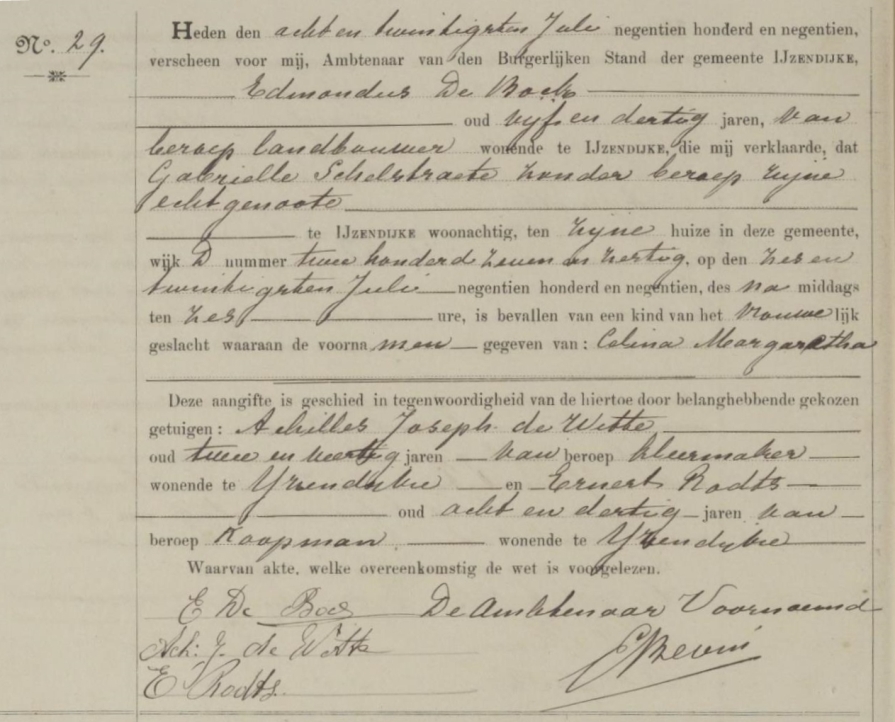 Nº. 29.
Heden den acht en twintigsten Juli negentien honderd en negentien,
verscheen voor mij, Ambtenaar van den Burgerlijken Stand der gemeente IJZENDIJKE,
Edmondus De Bock
oud vijf en dertig jaren, van
beroep landbouwer wonende te IJZENDIJKE, die mij verklaarde, dat
Gabrielle Schelstraete zonder beroep zijne
echtgenoote
te IJZENDIJKE woonachtig, ten zijne huize in deze gemeente,
wijk D nummer twee honderd zeven en , op den zes en
twintigsten Juli negentien honderd en negentien, des na middags
ten zes ure, is bevallen van een kind van het vrouwelijk
geslacht waaraan de voornamen gegeven van: Celina Margaretha
Deze aangifte is geschied in tegenwoordigheid van de hiertoe door belanghebbende gekozen
getuigen: Achilles Joseph de Witte
oud twee en veertig jaren van beroep kleermaker
wonende te Yzendyke en Ernest Rodts
oud acht en dertig jaren van
beroep Koopman wonende te Yzendyke
Waarvan akte, welke overeenkomstig de wet is voorgelezen.
E De Boc De Ambtenaar Voornoemd
Ach: J. de Witte
E Rodts.